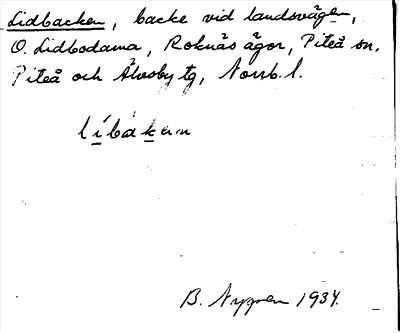 Lidbacken, backe vid landsvägen,
O. Lidbodarna, Roknäs ägor, Piteå sn.
Piteå och Älvsby tg, Norrb. l.
líbakɐn
B. Nygren 1934.